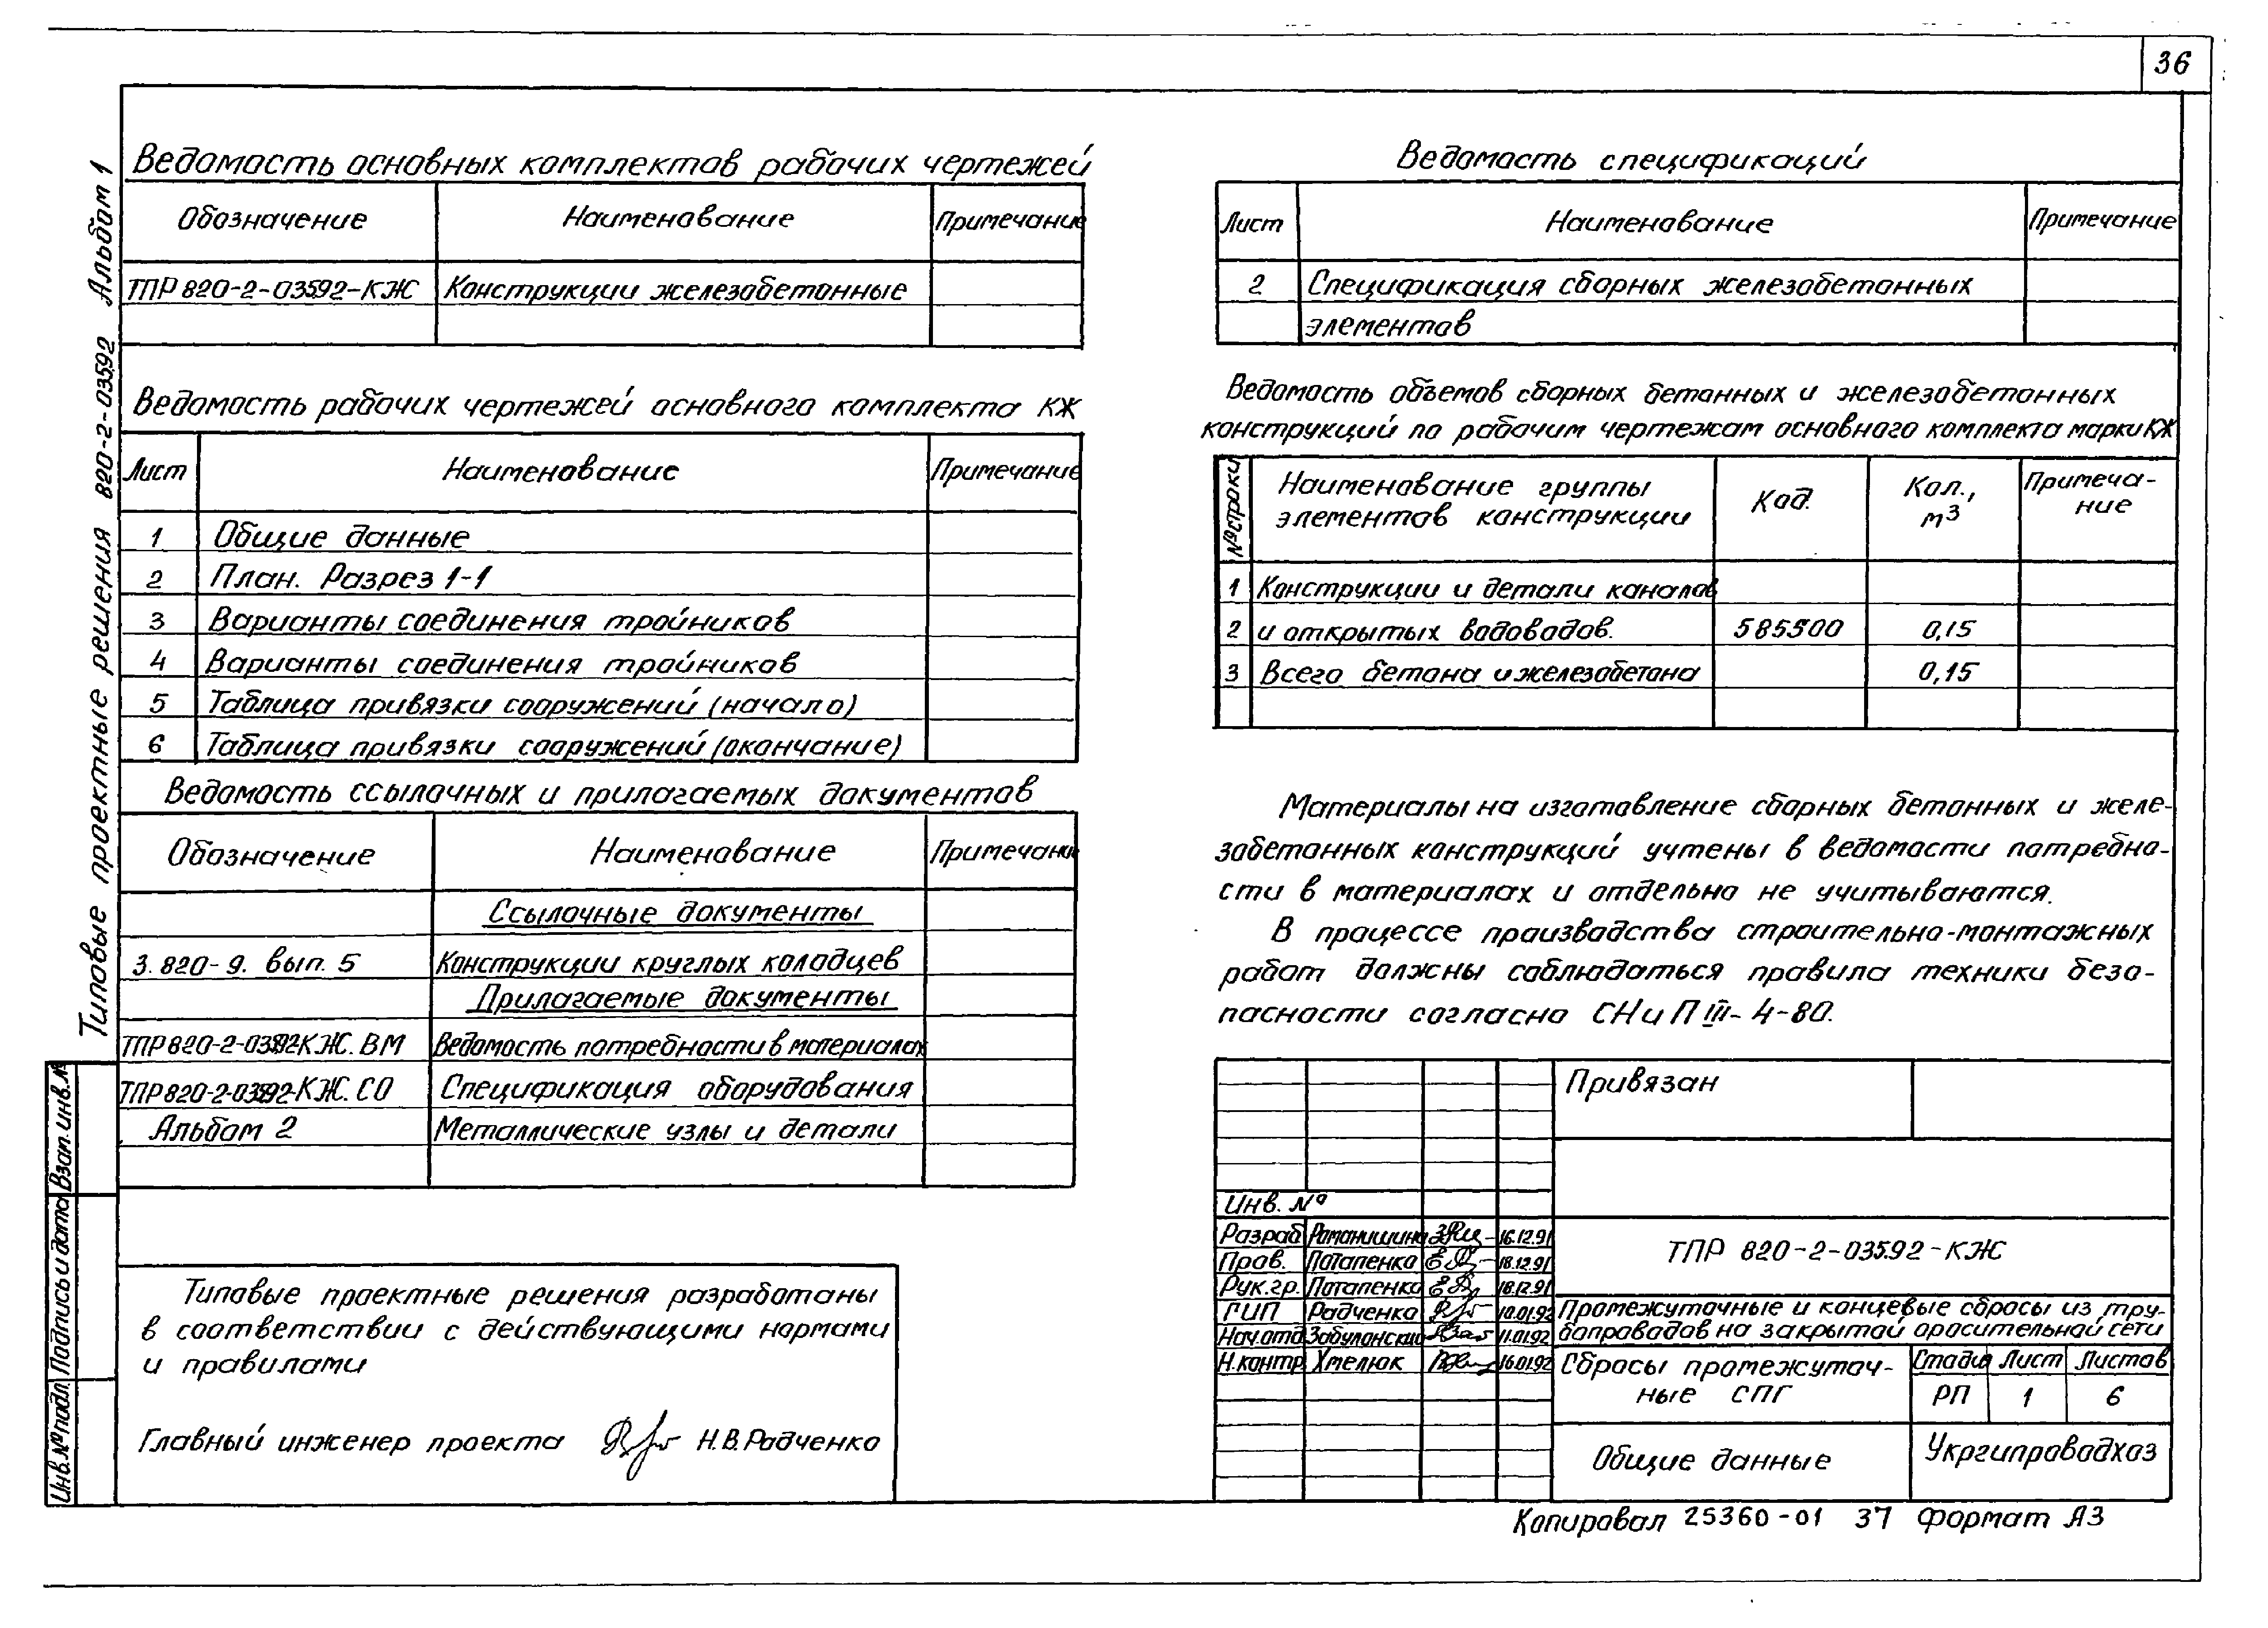 36
Типовые проектные решения 820-2-03592 Альбом 1
Ведомость основных комплектов рабочих чертежей
Обозначение Наименование Примечание
ТПР 820-2-03592-КЖ Конструкции железобетонные
Ведомость рабочих чертежей основного комплекта КЖ
Лист Наименование Примечание
1 Общие данные
2 План. Разрез 1-1
3 Варианты соединения тройников
4 Варианты соединения тройников
5 Таблица привязки сооружений (начало)
6 Таблица привязки сооружений (окончание)
Ведомость ссылочных и прилагаемых документов
Обозначение Наименование Примечани
Ссылочные документы
3.820-9. вып. 5 Конструкции круглых колодцев
Прилагаемые документы
ТПР 820-2-03592-КЖ. ВМ Ведомость потребности в материалах
ТПР 820-2-03592-КЖ. СО Спецификация оборудования
Альбом 2 Металлические узлы и детали
Типовые проектные решения разработаны
в соответствии с действующими нормами
и правилами
Главный инженер проекта Н.В. Радченко
Взап. инв. №
Подпись и дата
Инв. № подл.
Ведомость спецификаций
Лист Наименование Примечание
2 Спецификация сборных железобетонных
элементов
Ведомость объемов сборных бетонных и железобетонных
конструкций по рабочим чертежам основного комплекта марки КЖ
№ строки Наименование группы элементов конструкции Код. Кол., м3 Примеча-ние
1 Конструкции и детали каналов
2 и открытых водоводов. 585500 0,15
3 Всего бетона и железобетона 0,15
Материалы на изготовление сборных бетонных и желе-
зобетонных конструкций учтены в ведомости потребно-
сти в материалах и отдельно не учитываются.
В процессе производства строительно-монтажных
работ должны соблюдаться правила техники безо-
пасности согласно СНиП III-4-80.
Привязан
Инв. №
Разраб Романишина 16.12.91
Пров. Потапенко 18.12.91
Рук.гр. Потапенко 18.12.91
ГИП Радченко 10.01.92
Нач.отд Забуланский 11.01.92
Н.контр Хмелюк 16.01.92
ТПР 820-2-03592-КЖ
Промежуточные и концевые сбросы из тру-
бопроводов на закрытой оросительной сети
Сбросы промежуточ-
ные СПГ
Стадия Лист Листов
РП 1 6
Общие данные
Укргипроводхоз
Копировал 25360-01 37 Формат А3